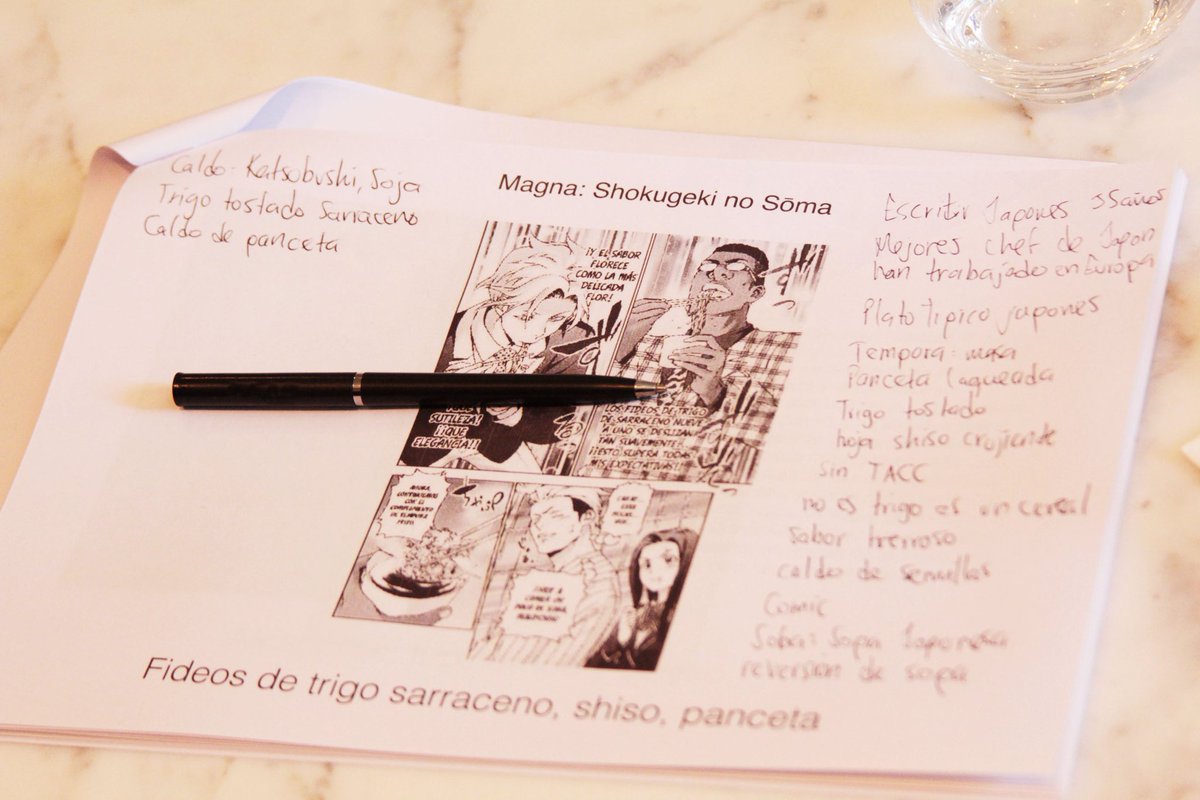 Caldo: Katsobushi, Soja
Trigo tostado Sarraceno
Caldo de panceta
Magna: Shokugeki no Sōma
¡Y EL SABOR
FLORECE
COMO LA MÁS
DELICADA
FLOR!
SUTILEZA!
¡¡QUE
ELEGANCIA!!
LOS FIDEOS DE TRIGO
DE SARRACENO NUEVE
A UNO SE DESLIZAN
TAN SUAVEMENTE.
¡¡ESTO SUPERA TODAS
MIS EXPECTATIVAS!!
AHORA,
CONTINUEMOS
CON EL
COMPLEMENTO
DE TEMPURA
Fideos de trigo sarraceno, shiso, panceta
Escritor Japones 35años
Mejores chef de Japon
han trabajado en Europa
Plato tipico japones
Tempora: masa
Panceta laqueada
Trigo tostado
hoja shiso crujiente
sin TACC
no es trigo es un cereal
sabor terroso
caldo de semillas
Comic
Soba: Sopa Japonesa
reversion de sopa